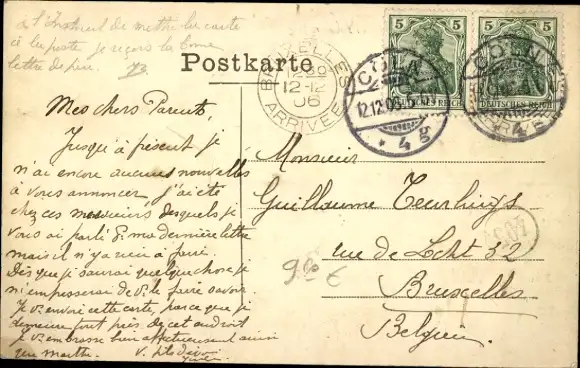 à l'instant de mettre la carte
à la poste je reçois la bonne
lettre de
Postkarte
BRUXELLES
12-12
06
ARRIVÉE
CÖLN
12.12.06.5-6
* 4g
5 5
DEUTSCHES REICH
5 5
DEUTSCHES REICH
CÖLN
Mes chers Parents,
Jusqu'à présent je
n'ai encore aucunes nouvelles
à vous annoncer j'ai été
chez ces messieurs desquels je
vous ai parlé ds ma dernière lettre
mais il n'y a rien à faire
Dès que je saurai quelque chose je
m'empresserai de vs le faire savoir.
Je vs envoie cette carte, parce que je
demeure tout près de cet endroit
je vs embrasse bien affectueusement ainsi
que Marthe. V. fils dévoué
Monsieur
Guillaume Teurlings
rue de Locht 32
Bruxelles
Belgien
9 €